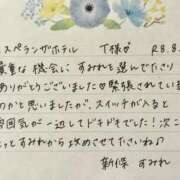 スペランザホテル T様♂ R8.8.
貴重な機会に すみれを選んでださり
ありがとうございました♡興奮されて い
のかと思いましたが、スイッチが入ると
雰囲気が一返してドキドキでした♡次
っとすみれから攻めさせてださいね♪
新保 すみれ